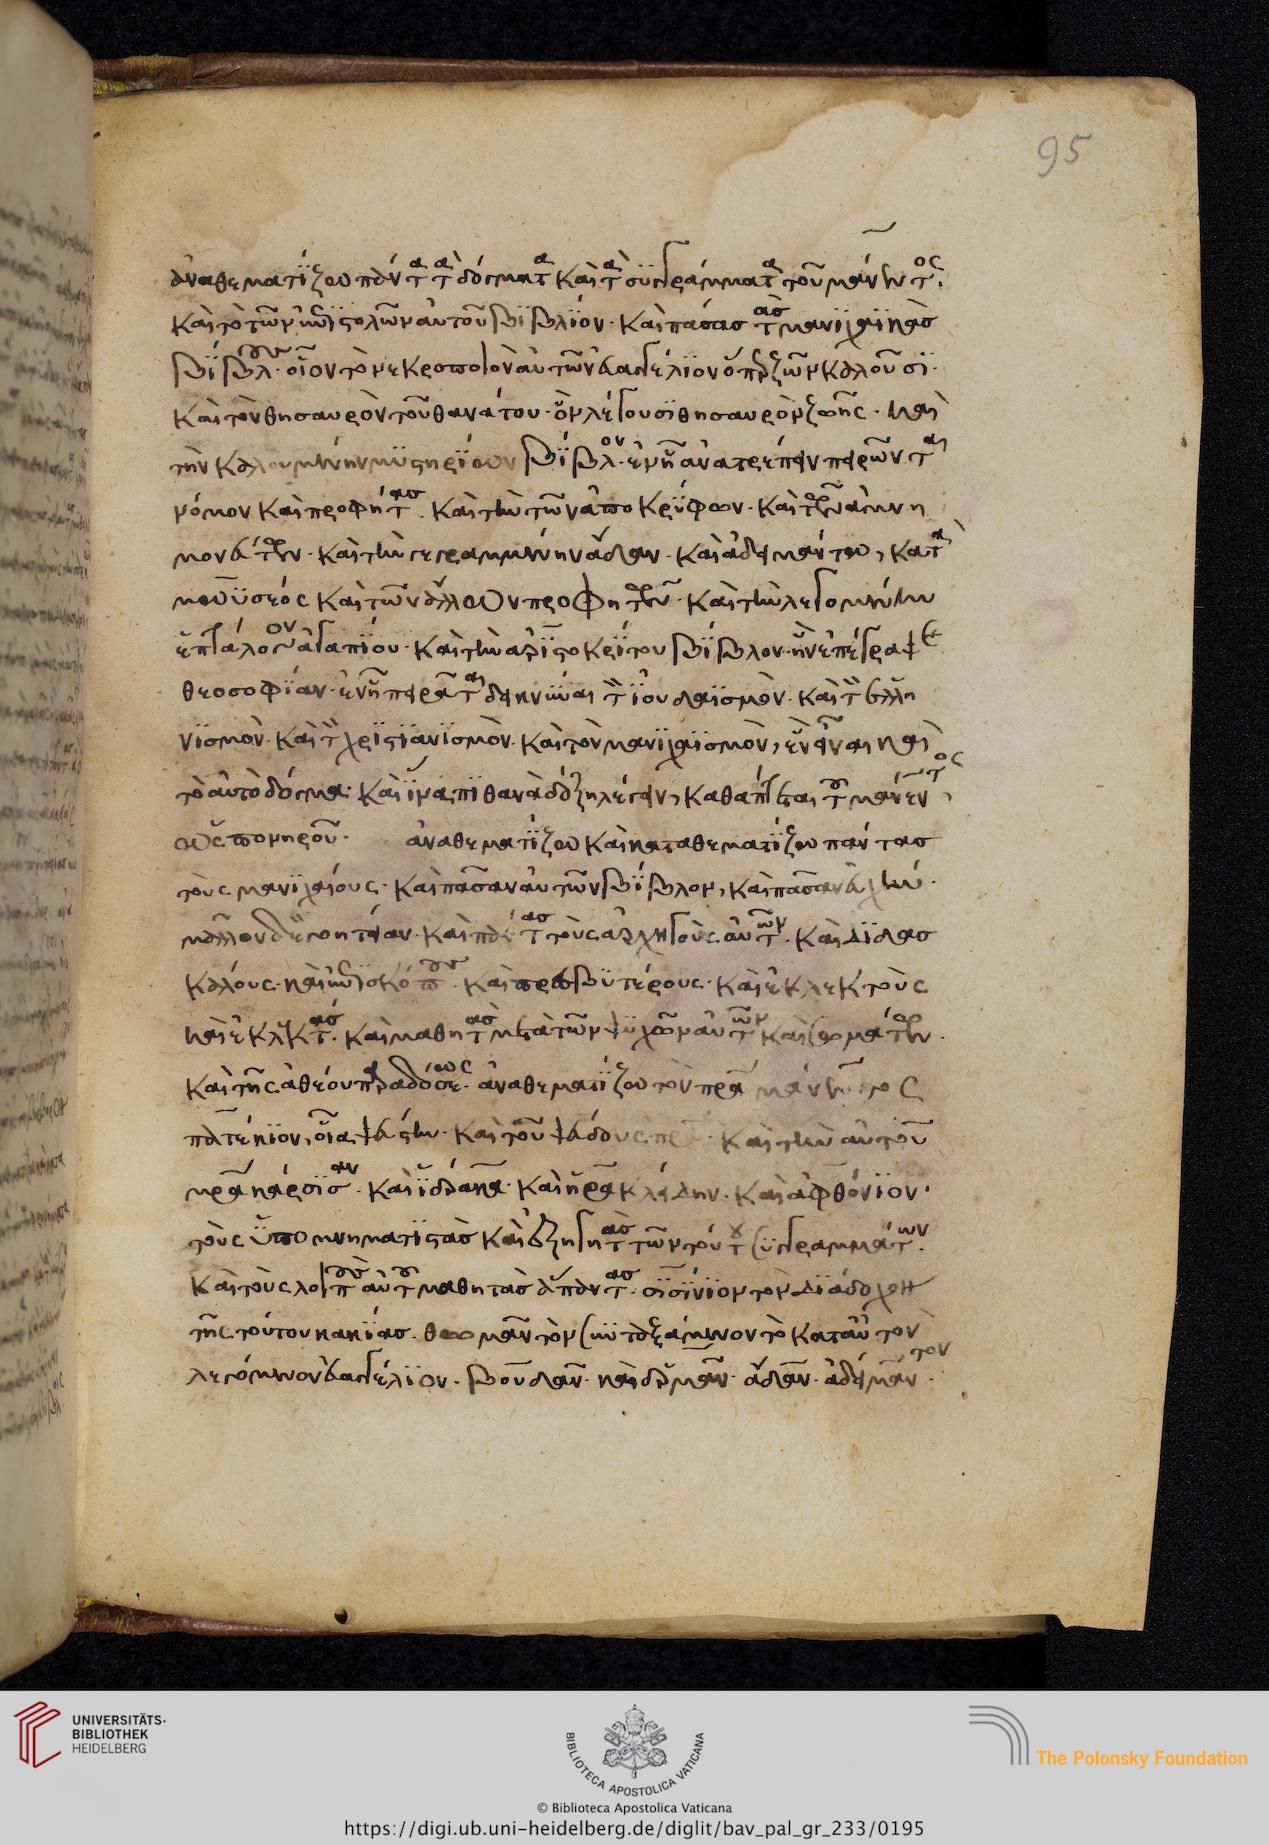 95
ἀναθεματίζω πάντα τὰ δόγματα καὶ τὰ συγγράμματα τοῦ μάνεντος.
καὶ τὸ τῶν ἐπιστολῶν αὐτοῦ βιβλίον· καὶ πάσας τὰς μανιχαϊκὰς
βίβλους· οἷον τὸ νεκροποιὸν αὐτῶν εὐαγγέλιον ὅπερ ζῶν καλοῦσι·
καὶ τὸν θησαυρὸν τοῦ θανάτου· ὃν λέγουσι θησαυρὸν ζωῆς· καὶ
τὴν καλουμένην μυστηρίων βίβλον· ἐν ᾗ ἀνατρέπειν πειρῶνται
νόμον καὶ προφήτας· καὶ τὴν τῶν ἀποκρύφων· καὶ τῶν ἀπομνη
μονευμάτων· καὶ τὴν γεγραμμένην ἄδδαν· καὶ ἀδειμάντω, κατὰ
μωϋσέος καὶ τῶν ἄλλων προφητῶν· καὶ τὴν λεγομένην
ἑπτάλογον ἀγαπίου· καὶ τὴν ἀριστοκρίτου βίβλον· ἣν ἐπέγραψε
θεοσοφίαν· ἐν ᾗ πειρᾶται δεικνύναι τὸν ἰουδαϊσμὸν· καὶ τὸν ἑλλη
νισμὸν· καὶ τὸν χριστιανισμὸν· καὶ τὸν μανιχαϊσμὸν, ἓν εἶναι καὶ
τὸ αὐτὸ δόγμα· καὶ ἵνα πιθανὰ δόξῃ λέγειν, καθάπτεται τοῦ μάνεντος,
ὡς πονηροῦ· ἀναθεματίζω καὶ καταθεματίζω πάντας
τοὺς μανιχαίους· καὶ πᾶσαν αὐτῶν βίβλον, καὶ πᾶσαν εὐχὴν·
μᾶλλον δὲ γοητείαν· καὶ πάντας τοὺς ἀρχηγοὺς αὐτῶν· καὶ διδασ
κάλους· καὶ ἐπισκόπους· καὶ πρεσβυτέρους· καὶ ἐκλεκτοὺς
καὶ ἐκλεκτάς· καὶ μαθητὰς μετὰ τῶν ψυχῶν αὐτῶν καὶ σωμάτων·
καὶ τῆς ἀθέου παραδόσεως· ἀναθεματίζω τὸν πατέρα μάνεντος
πατέκιον, οἷα ψεύστην· καὶ τοῦ ψεύδους πατέρα· καὶ τὴν αὐτοῦ
μητέρα κάροσσαν· καὶ ἱέρακα· καὶ ἡρακλείδην· καὶ ἀφθόνιον·
τοὺς ὑπομνηματιστὰς καὶ ἐξηγητὰς τῶν τούτου συγγραμμάτων.
καὶ τοὺς λοιποὺς αὐτοῦ μαθητὰς ἅπαντας· σισίνιον τὸν διάδοχον
τῆς τούτου μανίας· θωμᾶν τὸν συνταξάμενον τὸ κατ' αὐτὸν
λεγόμενον εὐαγγέλιον· βουδᾶν· καὶ ἑρμᾶν· ἄδδαν· ἀδείμαντον·
UNIVERSITÄTS-
BIBLIOTHEK
HEIDELBERG
BIBLIOTECA APOSTOLICA VATICANA
© Biblioteca Apostolica Vaticana
The Polonsky Foundation
https://digi.ub.uni-heidelberg.de/diglit/bav_pal_gr_233/0195